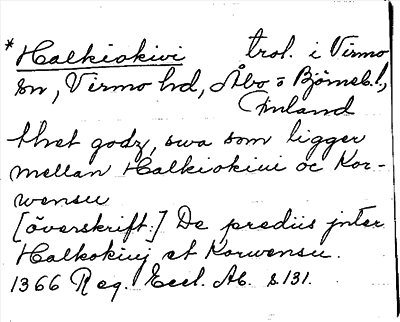 *Halkiokivi trol. i Virmo
sn, Virmo hd, Åbo o Björneb. l.,
Finland
thet godz, swa som ligger
mellan Halkiokiui oc Kor-
wensu
[överskrift:] De prediis jnter
Halkokiuj et Korwensu.
1366 Reg. Eccl. Ab. s. 131.